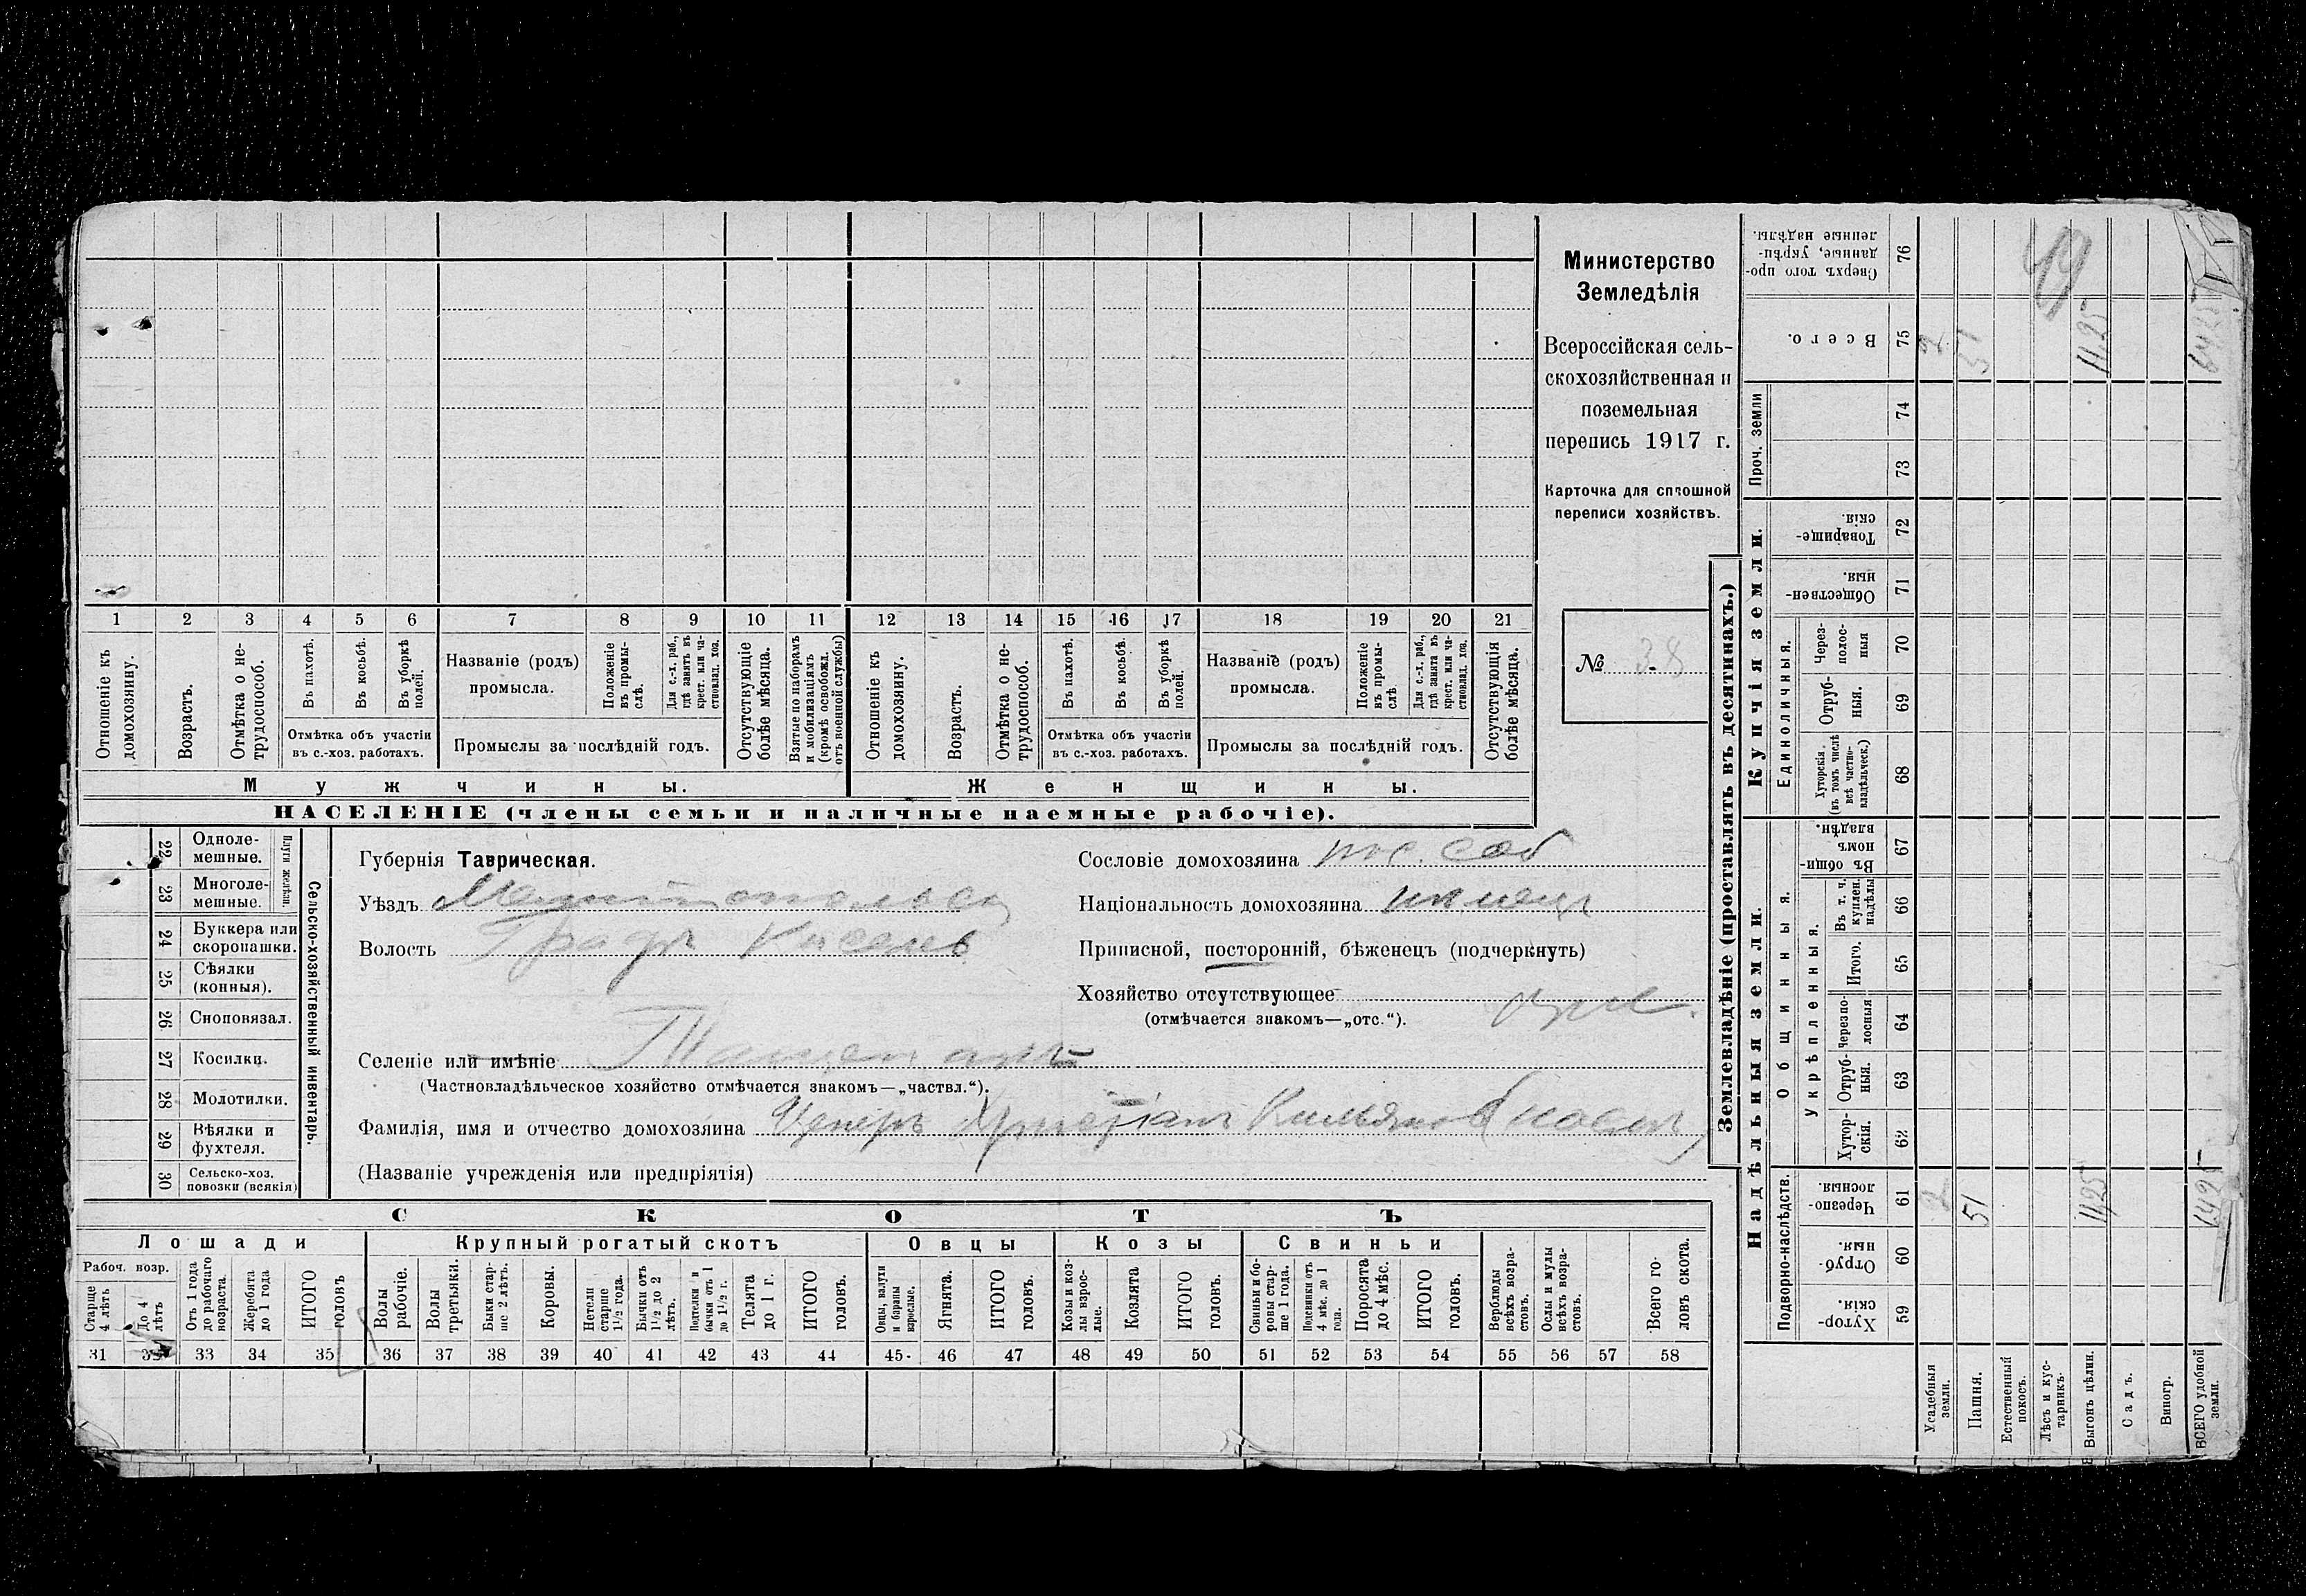 Министерство
Земледѣлія
Всероссійская сель-
скохозяйственная и
поземельная
перепись 1917 г.
Карточка для сплошной
переписи хозяйствъ.
№ 38
1 2 3 4 5 6 7 8 9 10 11 12 13 14 15 16 17 18 19 20 21
Отношеніе къ домохозяину.
Возрастъ.
Отмѣтка о не-трудоспособ.
Въ пахотѣ.
Въ косьбѣ.
Въ уборкѣ полей.
Отмѣтка объ участіи
въ с.-хоз. работахъ.
Названіе (родъ)
промысла.
Положеніе въ промы-слѣ.
Для с.-х. раб., гдѣ занятъ въ крест. или ча-стновлад. хоз.
Промыслы за послѣдній годъ.
Отсутствующіе болѣе мѣсяца.
Взятые по наборамъ и мобилизаціямъ (кромѣ освобожд. отъ военной службы)
Отношеніе къ домохозяину.
Возрастъ.
Отмѣтка о не-трудоспособ.
Въ пахотѣ.
Въ косьбѣ.
Въ уборкѣ полей.
Отмѣтка объ участіи
въ с.-хоз. работахъ.
Названіе (родъ)
промысла.
Положеніе въ промы-слѣ
Для с.-х. раб., гдѣ занята въ крест. или ча-стновлад. хоз.
Промыслы за послѣдній годъ.
Отсутствующія болѣе мѣсяца.
Мужчины.
Женщины.
НАСЕЛЕНІЕ (члены семьи и наличные наемные рабочіе).
Сельско-хозяйственный инвентарь.
Плуги желѣзн.
22 Одноле-мешные.
23 Многоле-мешные.
24 Буккера или скоропашки.
25 Сѣялки (конныя).
26 Сноповязал.
27 Косилки.
28 Молотилки.
29 Вѣялки и фухтеля.
30 Сельско-хоз. повозки (всякія)
Губернія Таврическая.
Уѣздъ
Волость
Селеніе или имѣніе
(Частновладѣльческое хозяйство отмѣчается знакомъ—„частвл.“).
Фамилія, имя и отчество домохозяина
(Названіе учрежденія или предпріятія)
Сословіе домохозяина пос. соб
Національность домохозяина нѣмецъ
Приписной, посторонній, бѣженецъ (подчеркнуть)
Хозяйство отсутствующее
(отмѣчается знакомъ—„отс.“).
СКОТЪ
Лошади
Крупный рогатый скотъ
Овцы
Козы
Свиньи
Рабоч. возр.
Старше 4 лѣтъ
До 4 лѣтъ
Отъ 1 года до рабочаго возраста.
Жеребята до 1 года
ИТОГО головъ
Волы рабочіе.
Волы третьяки.
Быки стар-ше 2 лѣтъ.
Коровы.
Нетели старше 1½ года.
Бычки отъ 1½ до 2 лѣтъ.
Подтелки и бычки отъ 1 до 1½ г.
Телята до 1 г.
ИТОГО головъ.
Овцы, валухи и бараны взрослые.
Ягнята.
ИТОГО головъ.
Козы и коз-лы взрос-лые.
Козлята
ИТОГО головъ.
Свиньи и бо-ровы стар-ше 1 года.
Подсвинки отъ 4 мѣс. до 1 года.
Поросята до 4 мѣс.
ИТОГО головъ.
Верблюды всѣхъ возра-стовъ.
Ослы и мулы всѣхъ возра-стовъ.
Всего го-ловъ скота.
31 32 33 34 35 36 37 38 39 40 41 42 43 44 45 46 47 48 49 50 51 52 53 54 55 56 57 58
Землевладѣніе (проставлять въ десятинахъ.)
Надѣльныя земли.
Купчія земли.
Проч. земли
Подворно-наслѣдств.
Общинныя.
Укрѣпленныя.
Единоличныя.
76 Сверхъ того про-данные, укрѣп-ленные надѣлы.
75 Всего.
74
73
72 Товарище-скія.
71 Обществен-ныя.
70 Через-полос-ныя
69 Отруб-ныя.
68 Хуторскія (въ томъ числѣ всѣ частно-владѣльческ.)
67 Въ общин. владѣн.
66 Въ т. ч. куплен. надѣлы
65 Итого.
64 Черезпо-лосныя
63 Отруб-ныя.
62 Хутор-скія.
61 Черезпо-лосныя.
60 Отруб-ныя.
59 Хутор-скія.
Усадебныя земли.
Пашня.
Естественный покосъ.
Лѣсъ и кус-тарникъ.
Выгонъ цѣлин.
Садъ.
Виногр.
ВСЕГО удобной земли.
49.
2 51 11,25 64,25
2 51 11,25 64,25